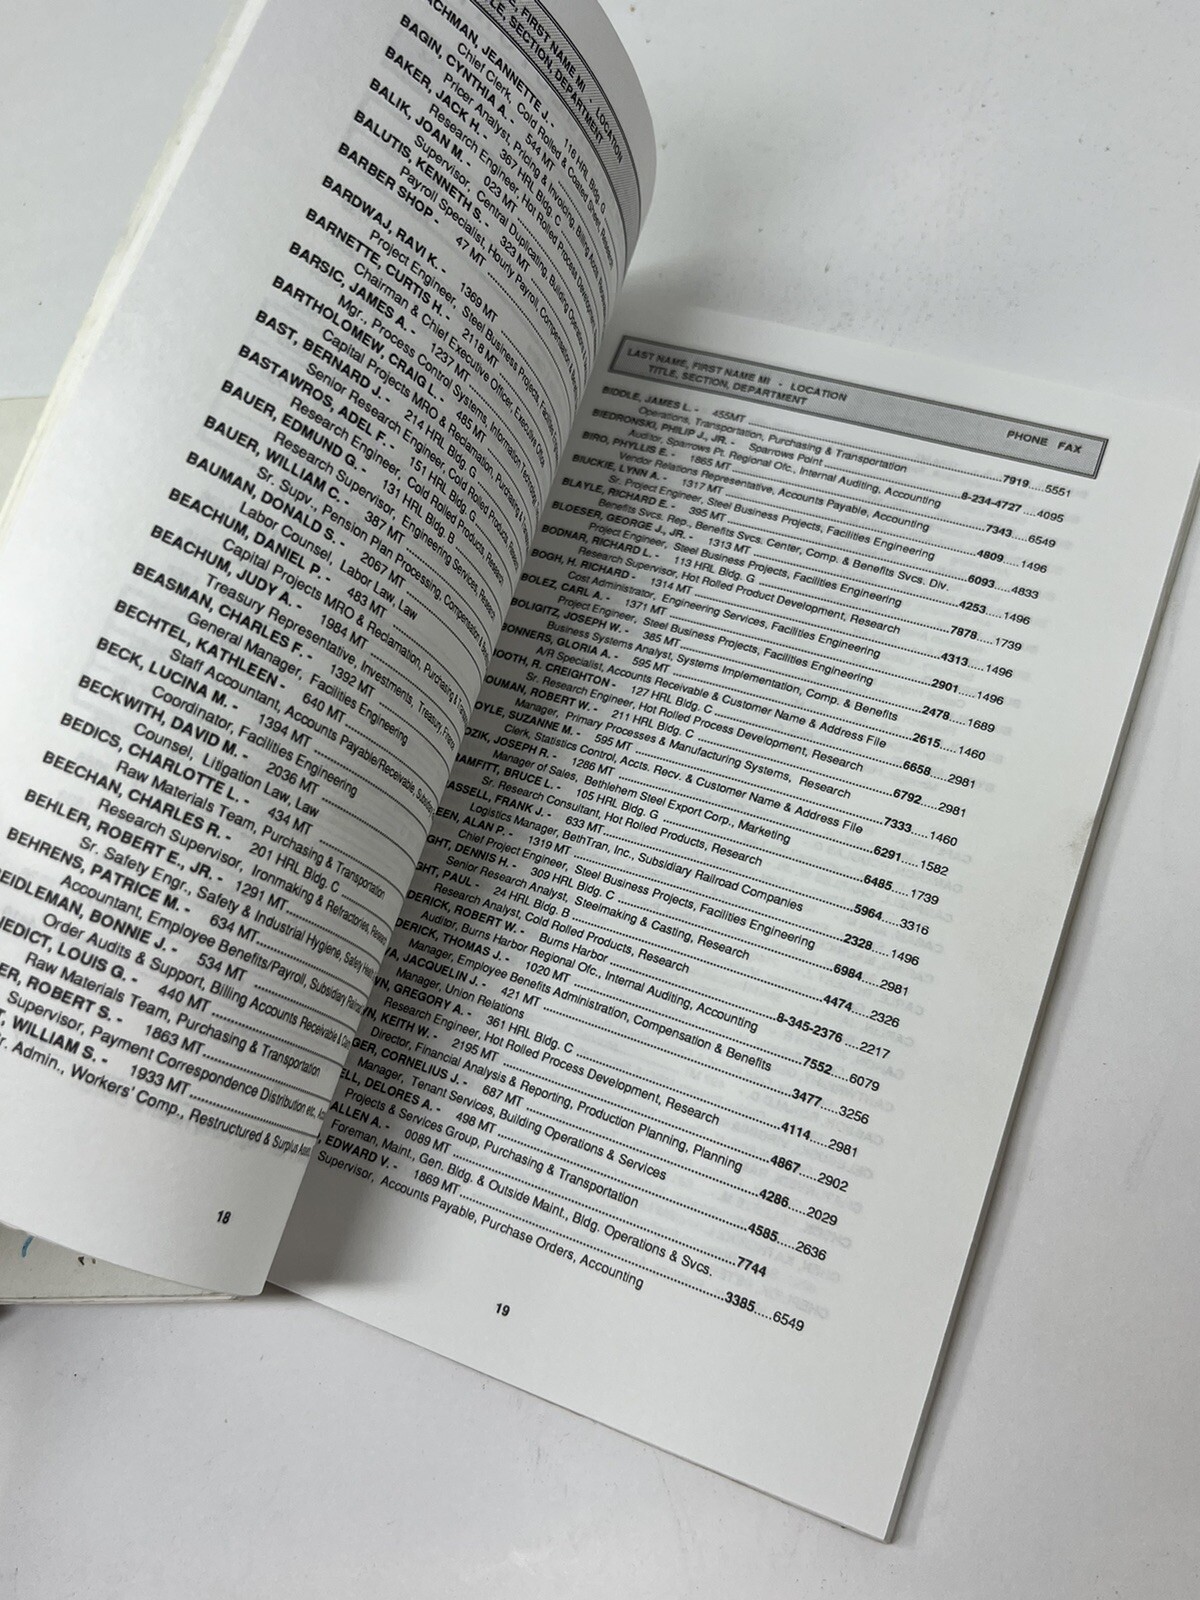 FIRST NAME MI - LOCATION
TITLE, SECTION, DEPARTMENT
ACHMAN, JEANNETTE J. - 116 HRL Bldg. G
Chief Clerk, Cold Rolled & Coated Sheet, Research
BAGIN, CYNTHIA A. - 544 MT
Pricer Analyst, Pricing & Invoicing, Billing Accts.
BAKER, JACK H. - 367 HRL Bldg. C
Research Engineer, Hot Rolled Process Development
BALIK, JOAN M. - 023 MT
Supervisor, Central Duplicating, Building Operations &
BALUTIS, KENNETH S. - 323 MT
Payroll Specialist, Hourly Payroll, Compensation &
BARBER SHOP - 47 MT
BARDWAJ, RAVI K. - 1369 MT
Project Engineer, Steel Business Projects, Facilities
BARNETTE, CURTIS H. - 2118 MT
Chairman & Chief Executive Officer, Executive Office
BARSIC, JAMES A. - 1237 MT
Mgr., Process Control Systems, Information
BARTHOLOMEW, CRAIG L. - 485 MT
Capital Projects MRO & Reclamation, Purchasing &
BAST, BERNARD J. - 214 HRL Bldg. G
Senior Research Engineer, Cold Rolled Products, Research
BASTAWROS, ADEL F. - 151 HRL Bldg. G
Research Engineer, Cold Rolled Products, Research
BAUER, EDMUND G. - 131 HRL Bldg. B
Research Supervisor, Engineering Services, Research
BAUER, WILLIAM C. - 387 MT
Sr. Supv., Pension Plan Processing, Compensation &
BAUMAN, DONALD S. - 2067 MT
Labor Counsel, Labor Law, Law
BEACHUM, DANIEL P. - 483 MT
Capital Projects MRO & Reclamation, Purchasing &
BEACHUM, JUDY A. - 1984 MT
Treasury Representative, Investments, Treasury,
BEASMAN, CHARLES F. - 1392 MT
General Manager, Facilities Engineering
BECHTEL, KATHLEEN - 640 MT
Staff Accountant, Accounts Payable/Receivable,
BECK, LUCINA M. - 1394 MT
Coordinator, Facilities Engineering
BECKWITH, DAVID M. - 2036 MT
Counsel, Litigation Law, Law
BEDICS, CHARLOTTE L. - 434 MT
Raw Materials Team, Purchasing & Transportation
BEECHAN, CHARLES R. - 201 HRL Bldg. C
Research Supervisor, Ironmaking & Refractories,
BEHLER, ROBERT E., JR. - 1291 MT
Sr. Safety Engr., Safety & Industrial Hygiene, Safety
BEHRENS, PATRICE M. - 634 MT
Accountant, Employee Benefits/Payroll, Subsidiary
EIDLEMAN, BONNIE J. - 534 MT
Order Audits & Support, Billing Accounts Receivable &
NEDICT, LOUIS G. - 440 MT
Raw Materials Team, Purchasing & Transportation
ER, ROBERT S. - 1863 MT
Supervisor, Payment Correspondence Distribution
T, WILLIAM S. - 1933 MT
r. Admin., Workers' Comp., Restructured & Surplus
18
LAST NAME, FIRST NAME MI - LOCATION
TITLE, SECTION, DEPARTMENT
PHONE FAX
BIDDLE, JAMES L. - 455MT.....7919.....5551
Operations, Transportation, Purchasing & Transportation
BIEDRONSKI, PHILIP J., JR. - Sparrows Point.....8-234-4727.....4095
Auditor, Sparrows Pt. Regional Ofc., Internal Auditing, Accounting
BIRO, PHYLLIS E. - 1865 MT.....7343.....6549
Vendor Relations Representative, Accounts Payable, Accounting
BIUCKIE, LYNN A. - 1317 MT.....4809.....1496
Sr. Project Engineer, Steel Business Projects, Facilities Engineering
BLAYLE, RICHARD E. - 395 MT.....6093.....4833
Benefits Svcs. Rep., Benefits Svcs. Center, Comp. & Benefits Svcs. Div.
BLOESER, GEORGE J., JR. - 1313 MT.....4253.....1496
Project Engineer, Steel Business Projects, Facilities Engineering
BODNAR, RICHARD L. - 113 HRL Bldg. G.....7878.....1739
Research Supervisor, Hot Rolled Product Development, Research
BOGH, H. RICHARD - 1314 MT.....4313.....1496
Cost Administrator, Engineering Services, Facilities Engineering
BOLEZ, CARL A. - 1371 MT.....2901.....1496
Project Engineer, Steel Business Projects, Facilities Engineering
BOLIGITZ, JOSEPH W. - 385 MT.....2478.....1689
Business Systems Analyst, Systems Implementation, Comp. & Benefits
BONNERS, GLORIA A. - 595 MT.....2615.....1460
A/R Specialist, Accounts Receivable & Customer Name & Address File
OOTH, R. CREIGHTON - 127 HRL Bldg. C.....6658.....2981
Sr. Research Engineer, Hot Rolled Process Development, Research
OUMAN, ROBERT W. - 211 HRL Bldg. C.....6792.....2981
Manager, Primary Processes & Manufacturing Systems, Research
OYLE, SUZANNE M. - 595 MT.....7333.....1460
Clerk, Statistics Control, Accts. Recv. & Customer Name & Address File
OZIK, JOSEPH R. - 1286 MT.....6291.....1582
Manager of Sales, Bethlehem Steel Export Corp., Marketing
AMFITT, BRUCE L. - 105 HRL Bldg. G.....6485.....1739
Sr. Research Consultant, Hot Rolled Products, Research
ASSELL, FRANK J. - 633 MT.....5964.....3316
Logistics Manager, BethTran, Inc., Subsidiary Railroad Companies
EEN, ALAN P. - 1319 MT.....2328.....1496
Chief Project Engineer, Steel Business Projects, Facilities Engineering
GHT, DENNIS H. - 309 HRL Bldg. C.....6984.....2981
Senior Research Analyst, Steelmaking & Casting, Research
GHT, PAUL - 24 HRL Bldg. B.....4474.....2326
Research Analyst, Cold Rolled Products, Research
DERICK, ROBERT W. - Burns Harbor.....8-345-2376.....2217
Auditor, Burns Harbor Regional Ofc., Internal Auditing, Accounting
DERICK, THOMAS J. - 1020 MT.....7552.....6079
Manager, Employee Benefits Administration, Compensation & Benefits
A, JACQUELIN J. - 421 MT.....3477.....3256
Manager, Union Relations
WN, GREGORY A. - 361 HRL Bldg. C.....4114.....2981
Research Engineer, Hot Rolled Process Development, Research
N, KEITH W. - 2195 MT.....4867.....2902
Director, Financial Analysis & Reporting, Production Planning, Planning
GER, CORNELIUS J. - 687 MT.....4286.....2029
Manager, Tenant Services, Building Operations & Services
ELL, DELORES A. - 498 MT.....4585.....2636
Projects & Services Group, Purchasing & Transportation
ALLEN A. - 0089 MT.....7744
Foreman, Maint., Gen. Bldg. & Outside Maint., Bldg. Operations & Svcs.
EDWARD V. - 1869 MT.....3385.....6549
Supervisor, Accounts Payable, Purchase Orders, Accounting
19